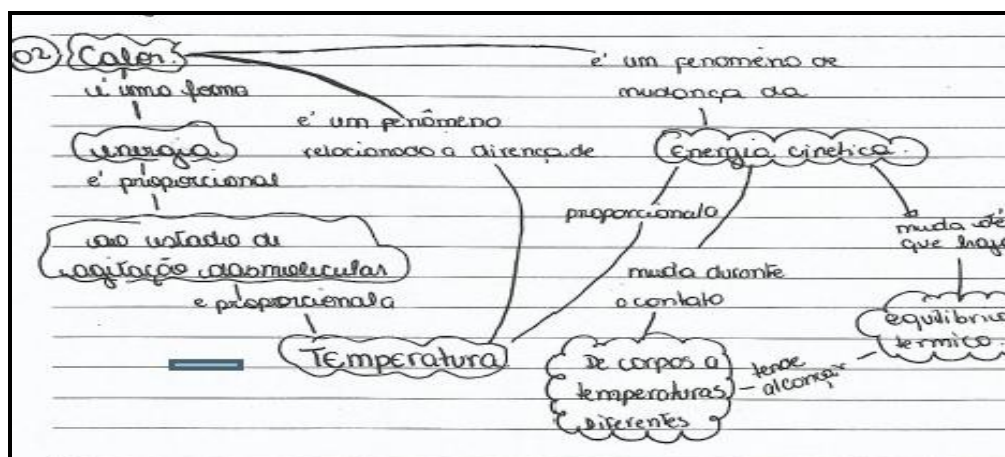 02) Calor.
é uma forma
energia
é proporcional
ao estado de
agitação das molecular
e proporcional a
Temperatura
é um fenômeno
relacionado a dirença de
é um fenomeno de
mudança da
Energia cinetica.
proporcional a
muda durante
o contato
De corpos a
temperaturas
Diferentes
tende
alcançar
muda até
que haja
equilibrio
termico.